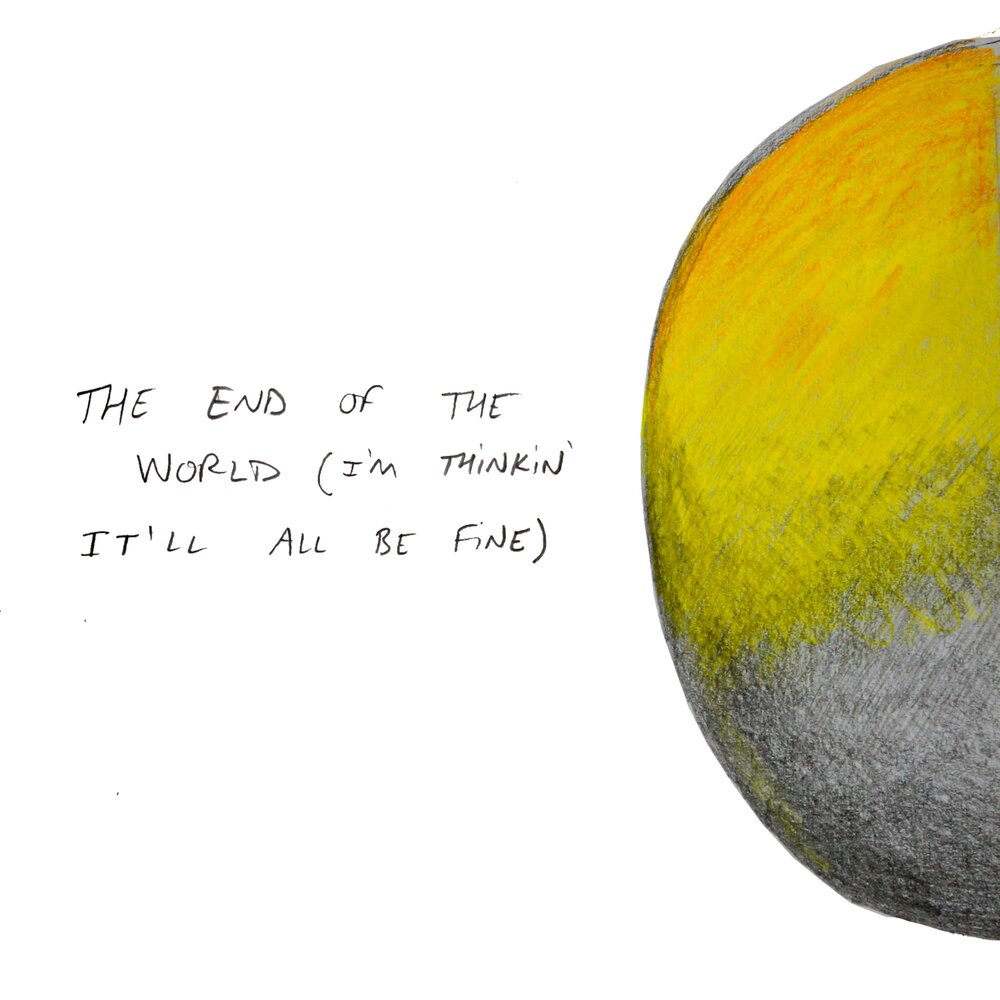 THE END OF THE
WORLD (I'M THINKIN'
IT'LL ALL BE FINE)